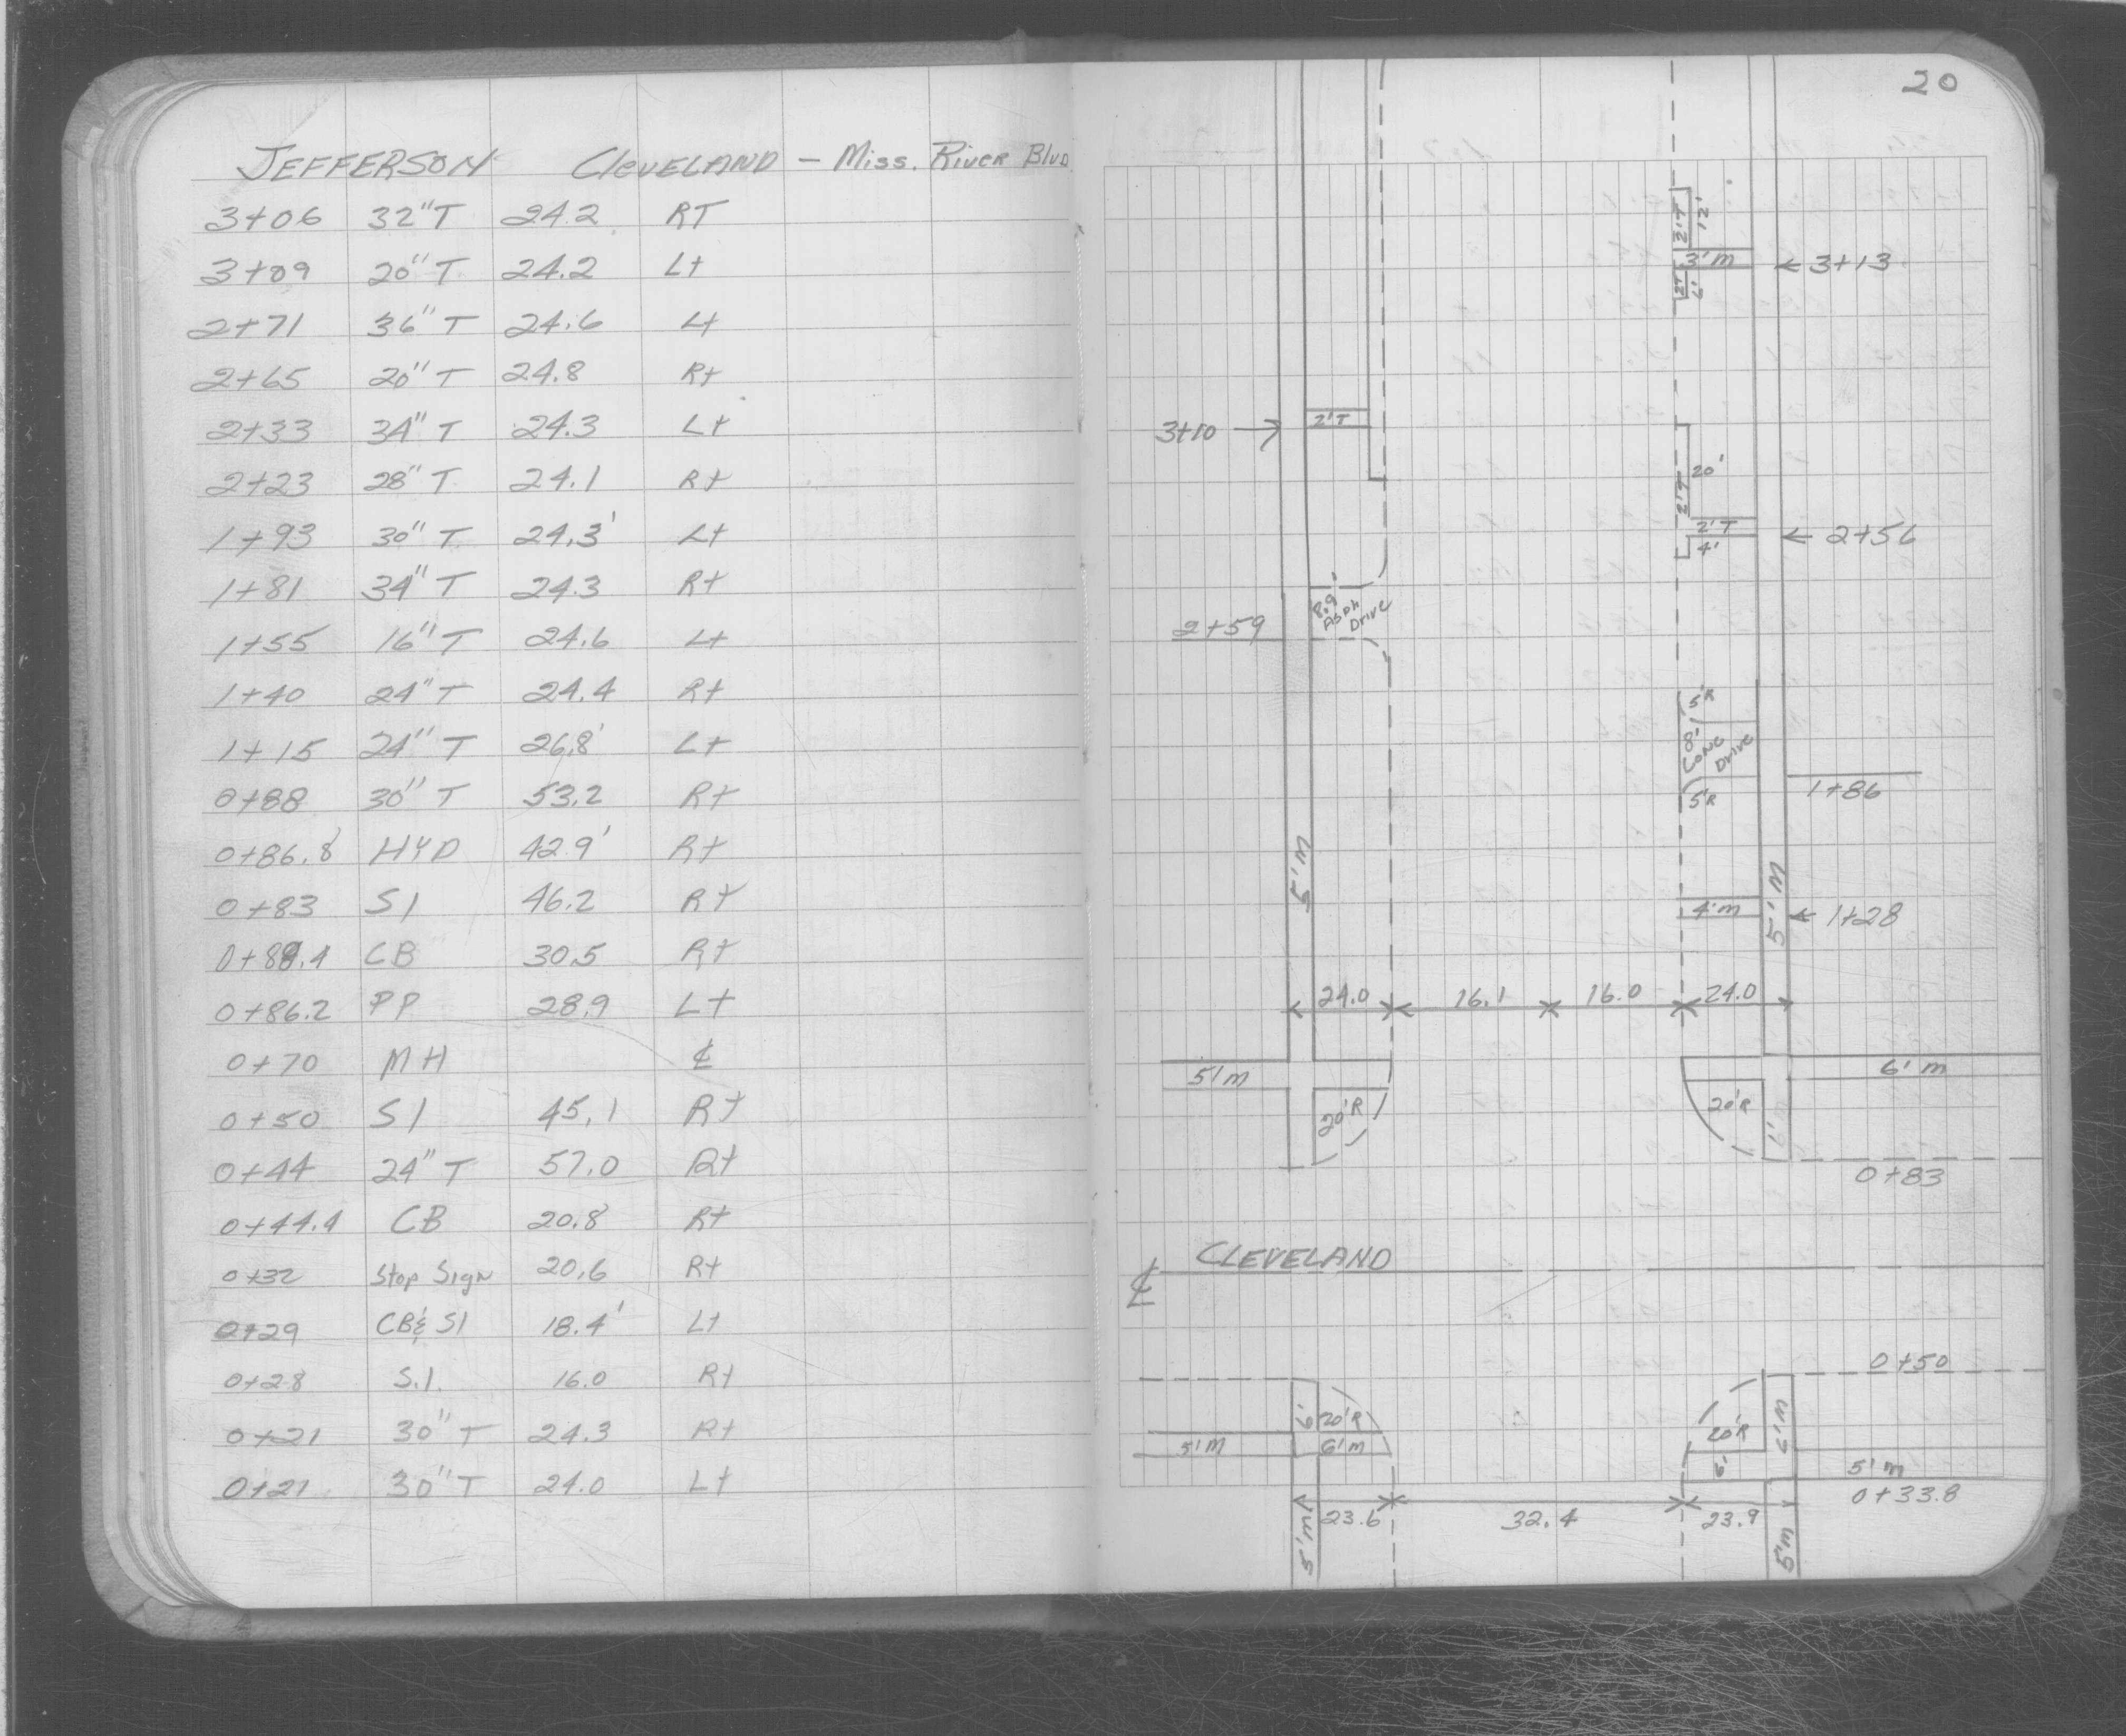 JEFFERSON CLEVELAND - Miss. River Blvd
3+06 32"T 24.2 RT
3+09 20"T 24.2 Lt
2+71 36"T 24.6 Lt
2+65 20"T 24.8 Rt
2+33 34"T 24.3 Lt
2+23 28"T 24.1 Rt
1+93 30"T 24.3' Lt
1+81 34"T 24.3 Rt
1+55 16"T 24.6 Lt
1+40 24"T 24.4 Rt
1+15 24"T 26.8' Lt
0+88 30"T 53.2 Rt
0+86.8 HYD 42.9' Rt
0+83 S1 46.2 Rt
CB 30.5 Rt
0+86.2 PP 28.9 Lt
0+70 MH ℄
0+50 S1 45.1 Rt
0+44 24"T 57.0 Rt
0+44.4 CB 20.8 Rt
0+32 Stop Sign 20.6 Rt
0+29 CB & S1 18.4' Lt
0+28 S.1. 16.0 Rt
0+21 30"T 24.3 Rt
0+21 30"T 24.0 Lt
20
2'T 12'
3'M ← 3+13
2'T 6'
3+10 → 2'T
2'T 20'
2'T ← 2+56
4'
8.9' Asph Drive
2+59
5'R
8' Conc Drive
5'R 1+86
5'M 5'M
4'M ← 1+28
24.0 16.1 16.0 24.0
5'M 6'M
20'R 20'R
0+83
℄ CLEVELAND
0+50
6' 20'R 20'R 6'M
5'M 6'M 6' 5'M
0+33.8
23.6 32.4 23.9
5'M 5'M